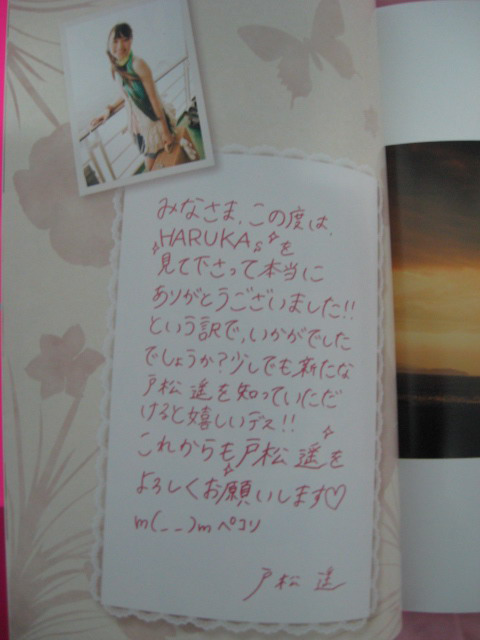 みなさま、この度は、
HARUKAsを
見て下さって本当に
ありがとうございました!!
という訳で、いかがでした
でしょうか?少しでも新たな
戸松遥を知っていただ
けると嬉しいデス!!
これからも戸松遥を
よろしくお願いします♡
m(__)mペコリ
戸松遥